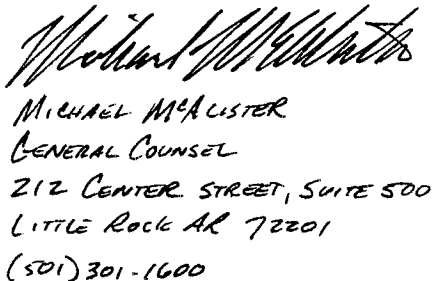 MICHAEL McALISTER
GENERAL COUNSEL
212 CENTER STREET, SUITE 500
LITTLE ROCK AR 72201
(501) 301-1600